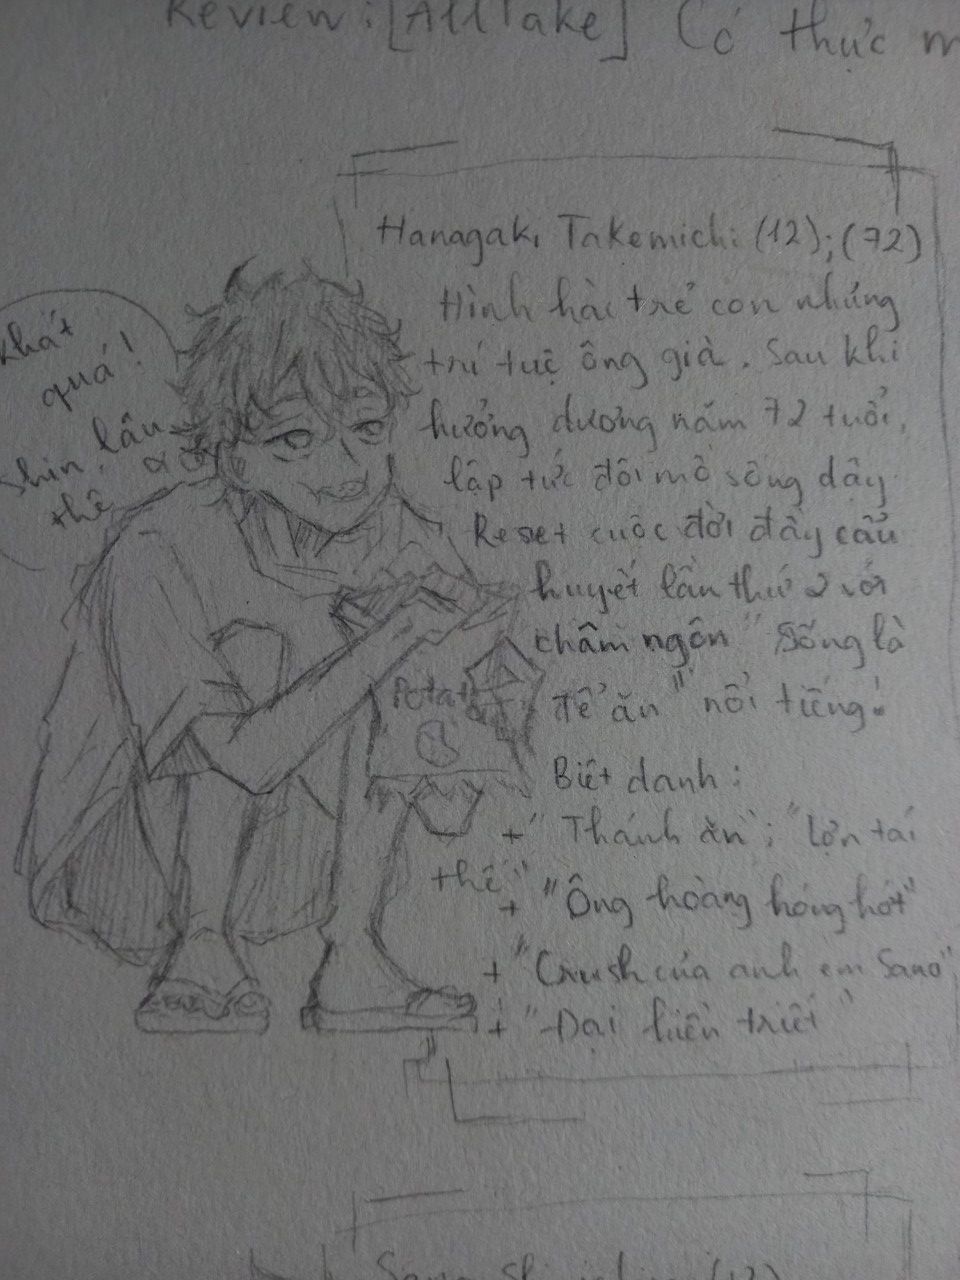 Review: [AllTake] Có thực m
Hanagaki Takemichi (12); (72)
Hình hài trẻ con nhưng
trí tuệ ông già. Sau khi
hưởng dương năm 72 tuổi,
lập tức đội mồ sống dậy
Reset cuộc đời đầy cẩu
huyết lần thứ 2 với
châm ngôn "Sống là
để ăn" nổi tiếng!
Biệt danh:
+ "Thánh ăn"; "Lợn tái
thế"
+ "Ông hoàng hóng hớt"
+ "Crush của anh em Sano"
+ "Đại hiền triết"
khát
quá!
Shin, lâu
thế
Potato
Sano Shinichiro (12)